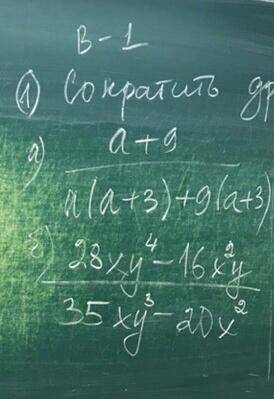 В-1
① Сократить др
а) a+9
a(a+3)+9(a+3)
б) 28xy⁴-16x²y
35xy³-20x²